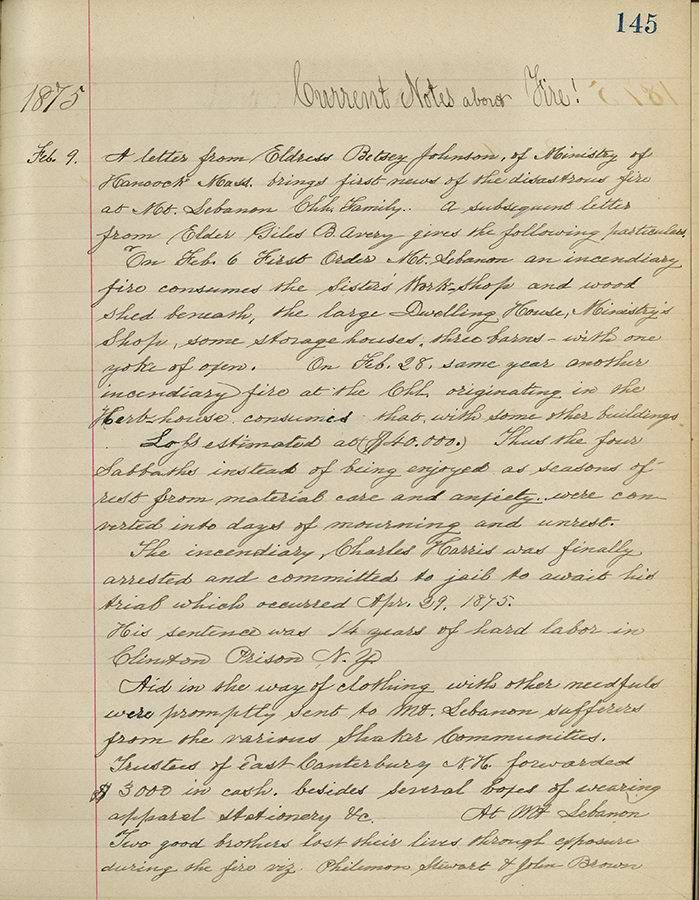 145
1875 Current Notes about Fire!
Feb. 9. A letter from Eldress Betsey Johnson, of Ministry of
Hancock Mass. brings first news of the disastrous fire
at Mt. Lebanon Chh. Family. A subsequent letter
from Elder Giles B. Avery gives the following particulars.
"On Feb. 6 First Order Mt. Lebanon an incendiary
fire consumes the Sister's Work-Shop and wood
shed beneath, the large Dwelling House, Ministry's
Shop, some storage houses, three barns - with one
yoke of oxen. On Feb. 28. same year another
incendiary fire at the Chh. originating in the
Herb-house consumes that, with some other buildings
Loss estimated at ($40.000.) Thus the four
Sabbaths instead of being enjoyed as seasons of
rest from material care and anxiety. were con
verted into days of mourning and unrest.
The incendiary, Charles Harris was finally
arrested and committed to jail to await his
trial which occurred Apr. 29, 1875.
His sentence was 14 years of hard labor in
Clinton Prison N.Y.
Aid in the way of clothing with other needfuls
were promptly sent to Mt. Lebanon sufferers
from the various Shaker Communities.
Trustees of East Canterbury N.H. forwarded
$ 3000 in cash. besides several boxes of wearing
apparel stationery &c. At Mt Lebanon
Two good brothers lost their lives through exposure
during the fire viz. Philemon Stewart & John Brown